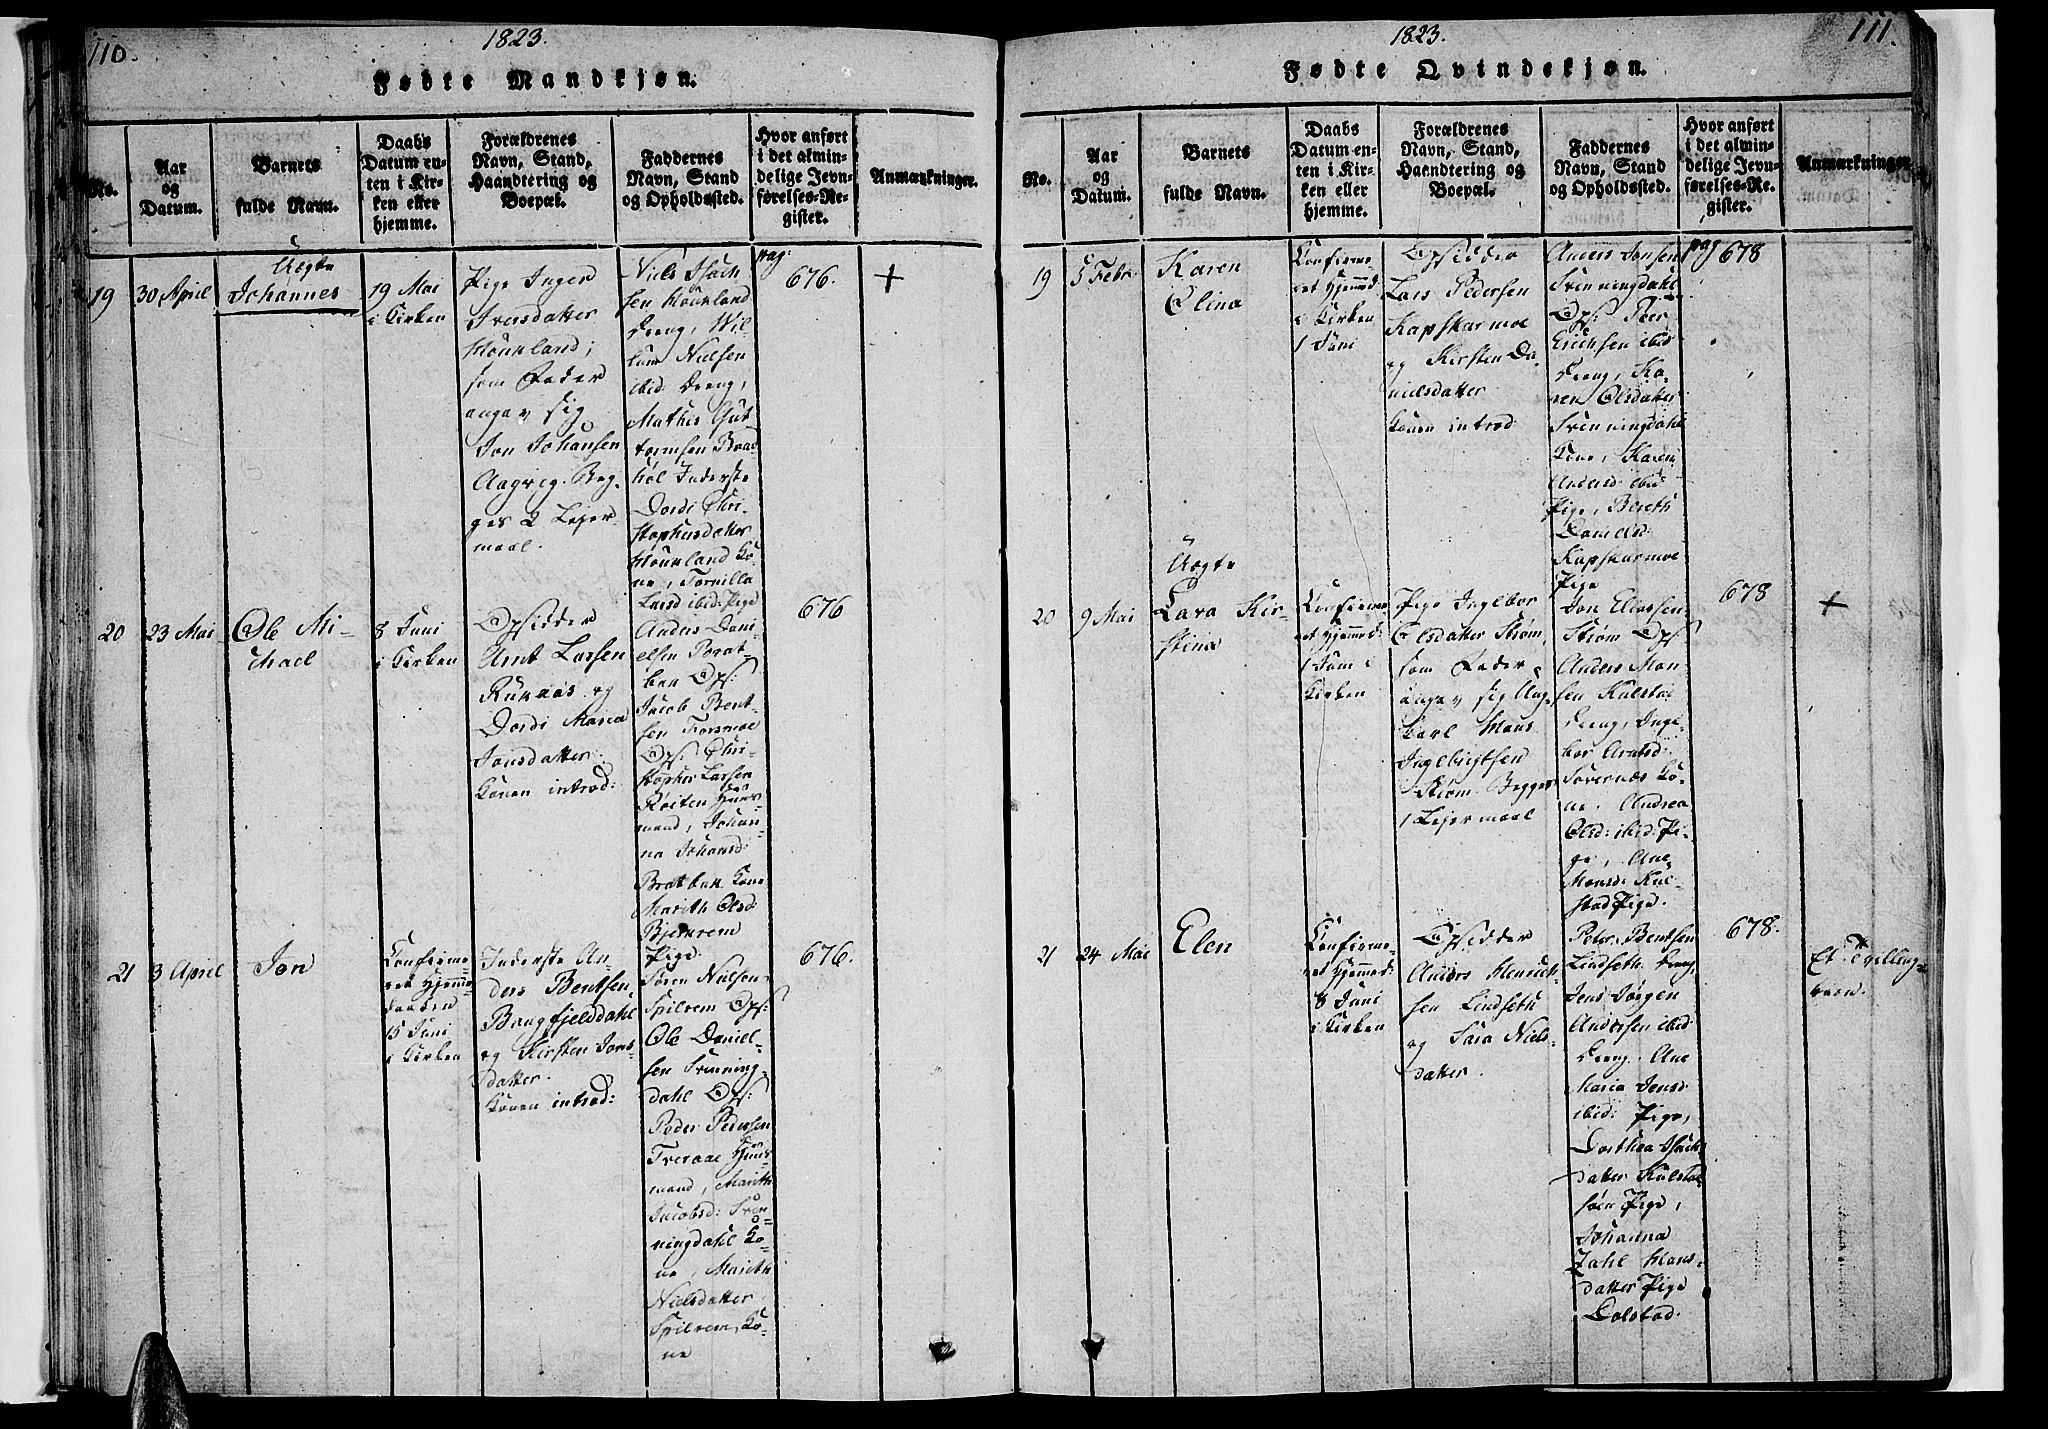 110.
1823.
Fødte Mandkjøn.
No.
Aar
og
Datum.
Barnets
fulde Navn.
Daabs
Datum en-
ten i Kir-
ken eller
hjemme.
Forældrenes
Navn, Stand,
Haandtering og
Boepæl.
Faddernes
Navn, Stand
og Opholdssted.
Hvor anført
i det almin-
delige Jevn-
førelses-Re-
gister.
Anmærkninger.
19
30 April
Uægte
Johannes
19 Mai
i Kirken
Pige Inger
Iversdatter
Houkland;
som Fader
angav sig
Jon Johansen
Aagvig. Beg-
ges 2 Lejer-
maal.
Niels Isach
sen Houkland
Dreng, Wil-
lum Nielsen
ibid: Dreng,
Mathis Gut
tormsen Baad
høl Inderste
Dordi Chri-
stophersdatter
Houkland Ko-
ne, Tornilla
Larsd ibid: Pige
pag:
676.
+
20
23 Mai
Ole Mi-
chael
8 Juni
i Kirken
Opsidder
Amt Larsen
Runaas og
Dordi Maria
Jonsdatter.
Konen introd:
Anders Dani-
elsen Brat-
bak Ops:
Jacob Bent-
sen Forsmoe
Ops: Chri-
stopher Larsen
Røiten Huus-
mand, Johan-
na Johansd:
Bratbak Kone
Marith Olsd
Bjerkrem
Pige.
676
21
3 April
Jon
Confirme-
ret Hjemme-
daaben
15 Juni
i Kirken
Inderste An-
ders Bentsen
Baagfjelddahl
og Kirsten Jons-
datter.
Konen introd:
Søren Nielsen
Spilrem Ops:
Ole Daniel-
sen Svenning-
dahl Ops:
Peder Pedersen
Tveraae Huus-
mand, Marith
Jacobsd: Sven-
ningdahl Ko-
ne, Marith
Nielsdatter
Spilrem, Ko-
ne
676.
1823.
111.
Fødte Qvindekjøn.
No.
Aar
og
Datum.
Barnets
fulde Navn.
Daabs
Datum en-
ten i Kir-
ken eller
hjemme.
Forældrenes
Navn, Stand,
Haandtering og
Boepæl.
Faddernes
Navn, Stand
og Opholdssted.
Hvor anført
i det almin-
delige Jevn-
førelses-Re-
gister.
Anmærkninger
19
5 Febr
Karen
Olina
Confirme-
ret Hjemmed:
i Kirken
1 Juni
Opsidder
Lars Pedersen
Kapskarmoe
og Kirsten Da-
nielsdatter
Konen introd
Anders Jonsen
Svenningdahl
Ops: Peer
Erichsen ibid
Dreng, Ka-
ren Olsdatter
Svenningdahl
Kone, Karen
Andersd ibid
Pige, Bereth
Danielsd:
Kapskarmoe
Pige
pag 678
20
9 Mai
Uægte
Lara Kir-
stina
Confirme-
ret Hjemmed:
1 Juni i
Kirken
Pige Ingebor
Olsdatter Strøm,
som Fader
angav sig Ung-
karl Hans
Ingebrigtsen
Strøm. Begges
1 Lejermaal
Jon Eliassen
Strøm Ops
Anders Mon-
sen Kulstad
Dreng, Inge-
bor Arntsd:
Sørnæs Ko-
ne. Andrea
Olsd: ibid: Pi-
ge, Ane
Monsd: Kul-
stad Pige.
678
+
21
24 Mai
Elen
Confirme-
ret Hjemmed:
8 Juni
i Kirken
Opsidder
Anders Henrich-
sen Lindseth
og Sara Niels-
datter.
Peter Bentsen
Lindseth Dreng
Jens Jørgen
Andersen ibid:
Dreng. Ane
Maria Jensd
ibid: Pige,
Dorthea Isachs-
datter Kulstad
søen Pige,
Johanna
Zahl Hans-
datter Pige
Dolstad.
678.
Et Tvilling-
barn.